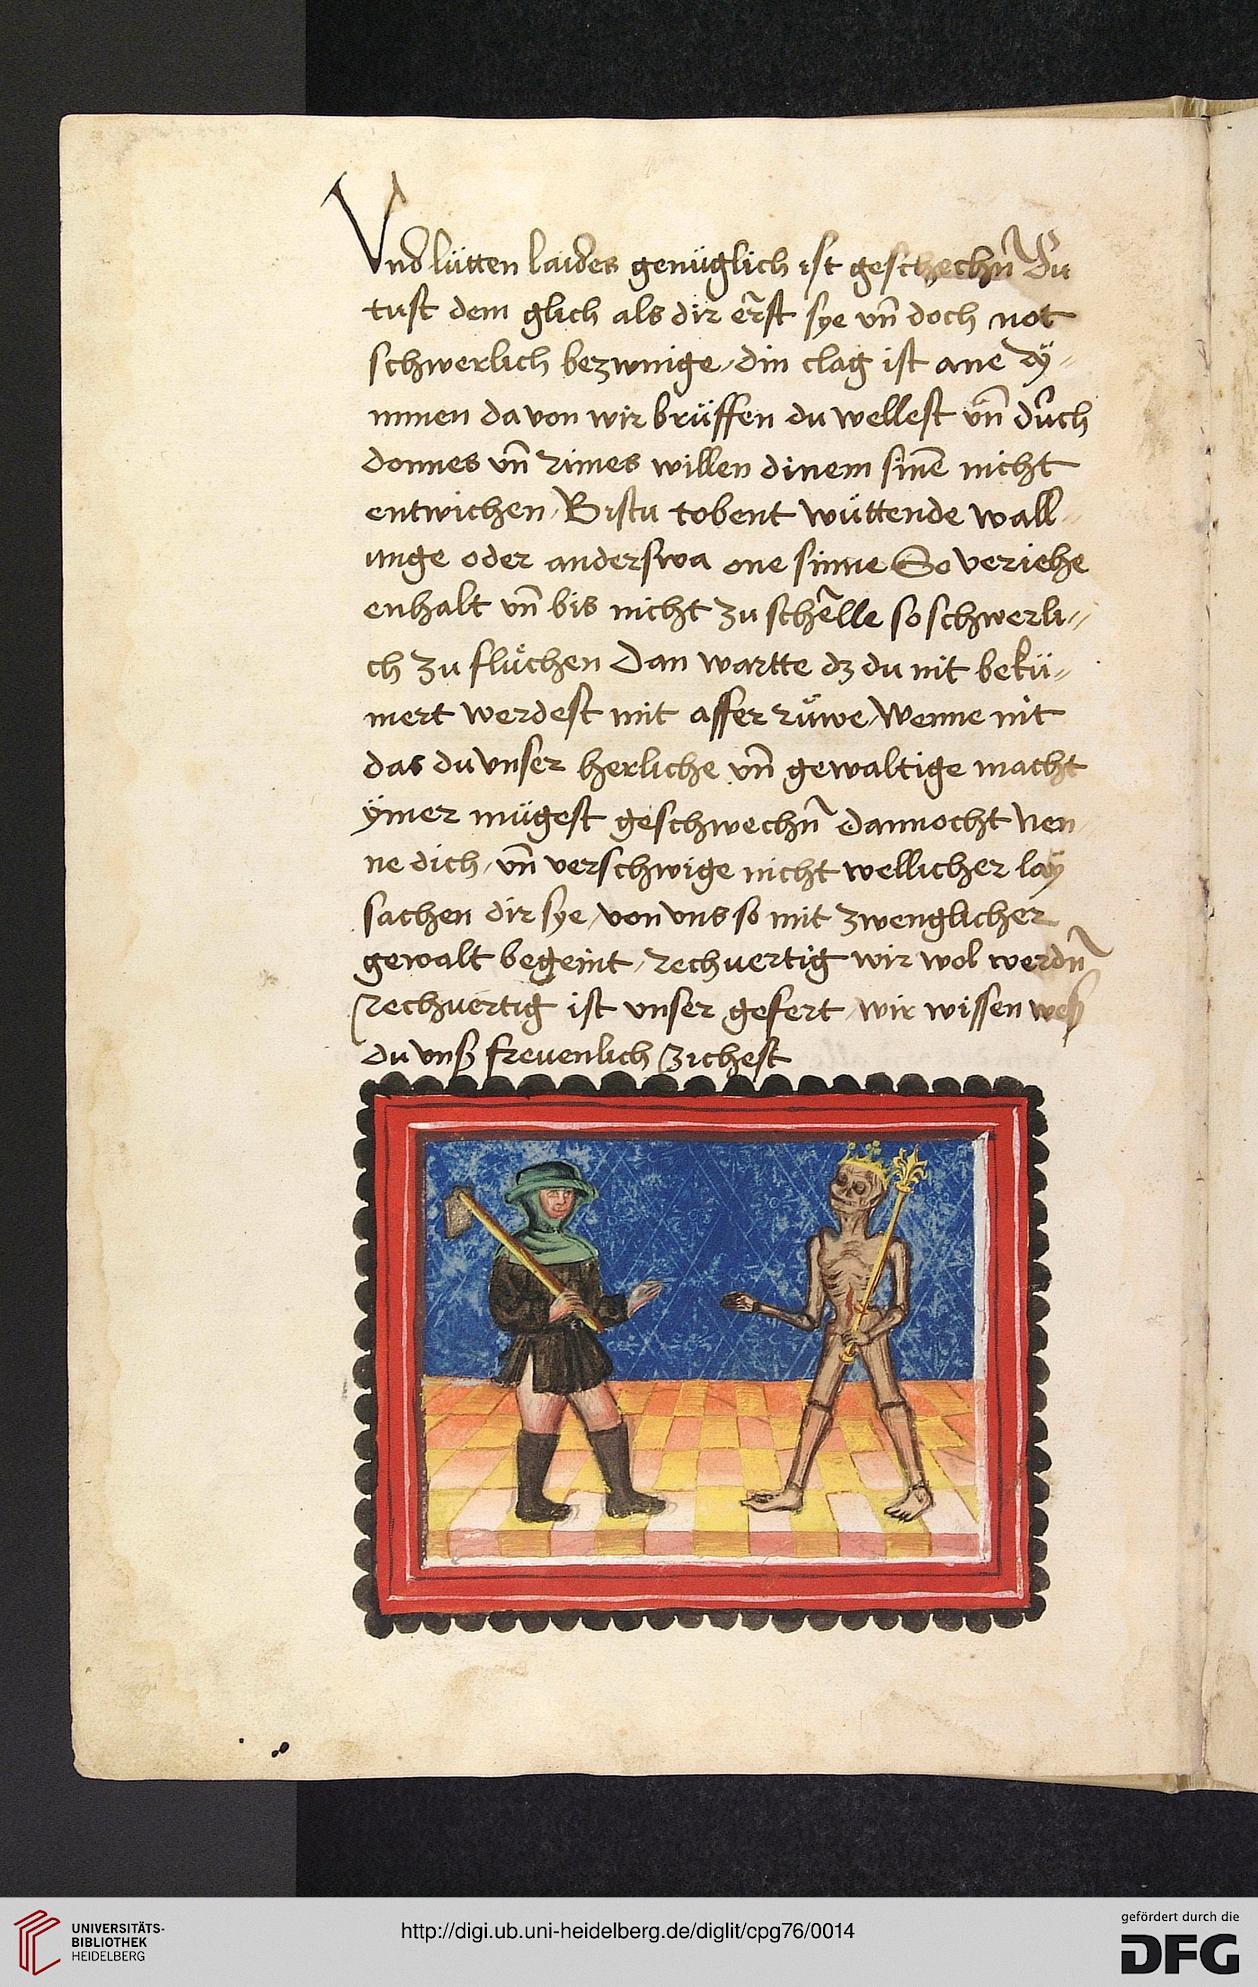 Vnd lütten laides genüglich ist geschechn̄ Du
tust dem glich als dir ernst sye vn̄ doch not
schwerlich bezwnige din clag ist ane ry=
mmen da von wir brüffen du wellest vn̄ durch
donnes vn̄ rimes willen dinem sine nicht
entwichen / Bistu tobent wüttende wall=
unge oder anderswa one sinne So veriehe
enhalt vn̄ bis nicht zu schelle so schwerli=
ch zu flüchen Dan wartte dz du nit bekü=
mert werdest mit affer rüwe / Wenne nit
das du vnser herliche vn̄ gewaltige macht
ÿmer mügest geschwechn̄ dannocht nen=
ne dich / vn̄ verschwige nicht wellicher lay
sachen dir sye / von vns so mit zwenglicher
gewalt begeint / rechuertig wir wol werdn̄
rechuertig ist vnser gefert / wir wissen weß
du vnß freuenlich zichest
UNIVERSITÄTS-
BIBLIOTHEK
HEIDELBERG
http://digi.ub.uni-heidelberg.de/diglit/cpg76/0014
gefördert durch die
DFG